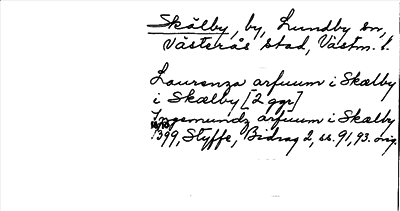 Skälby, by, Lundby sn,
Västerås stad, Västm. l.
Laurenza arfuum i Skælby
i Skælby [2 ggr]
Ingemundz arfuum i Skælby
1399, Styffe, Bidrag 2, ss. 91, 93. orig.